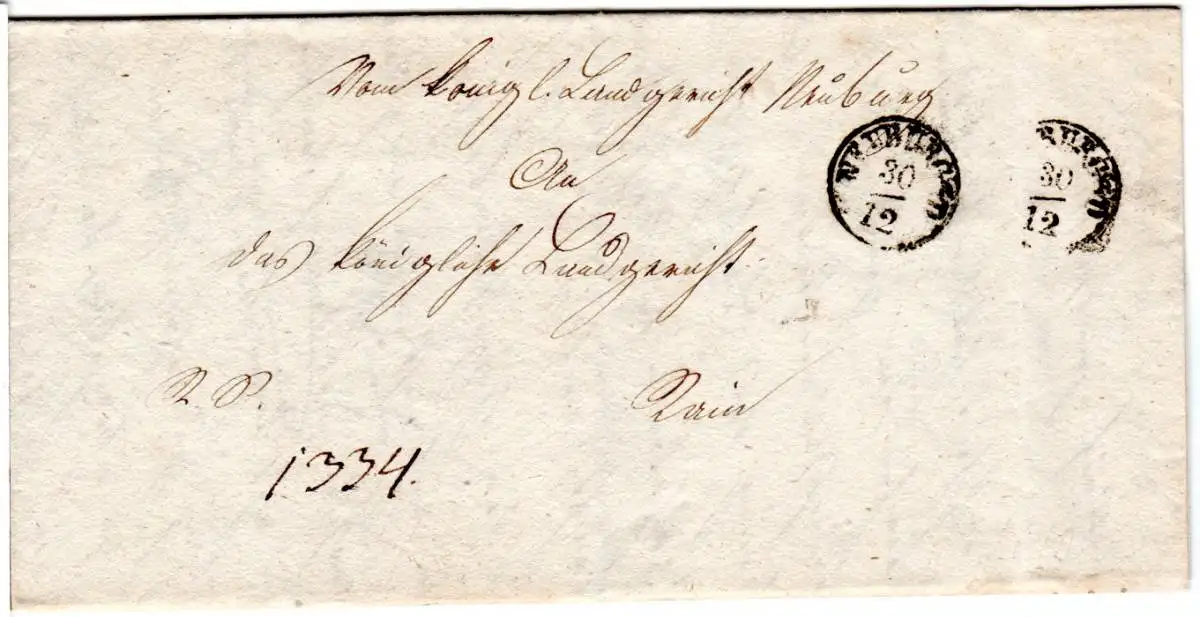 Vom königl. Landgericht Neuburg
NEUBURG a/D
30
12
30
12
An
das königliche Landgericht
R. S.
Rain
1334.